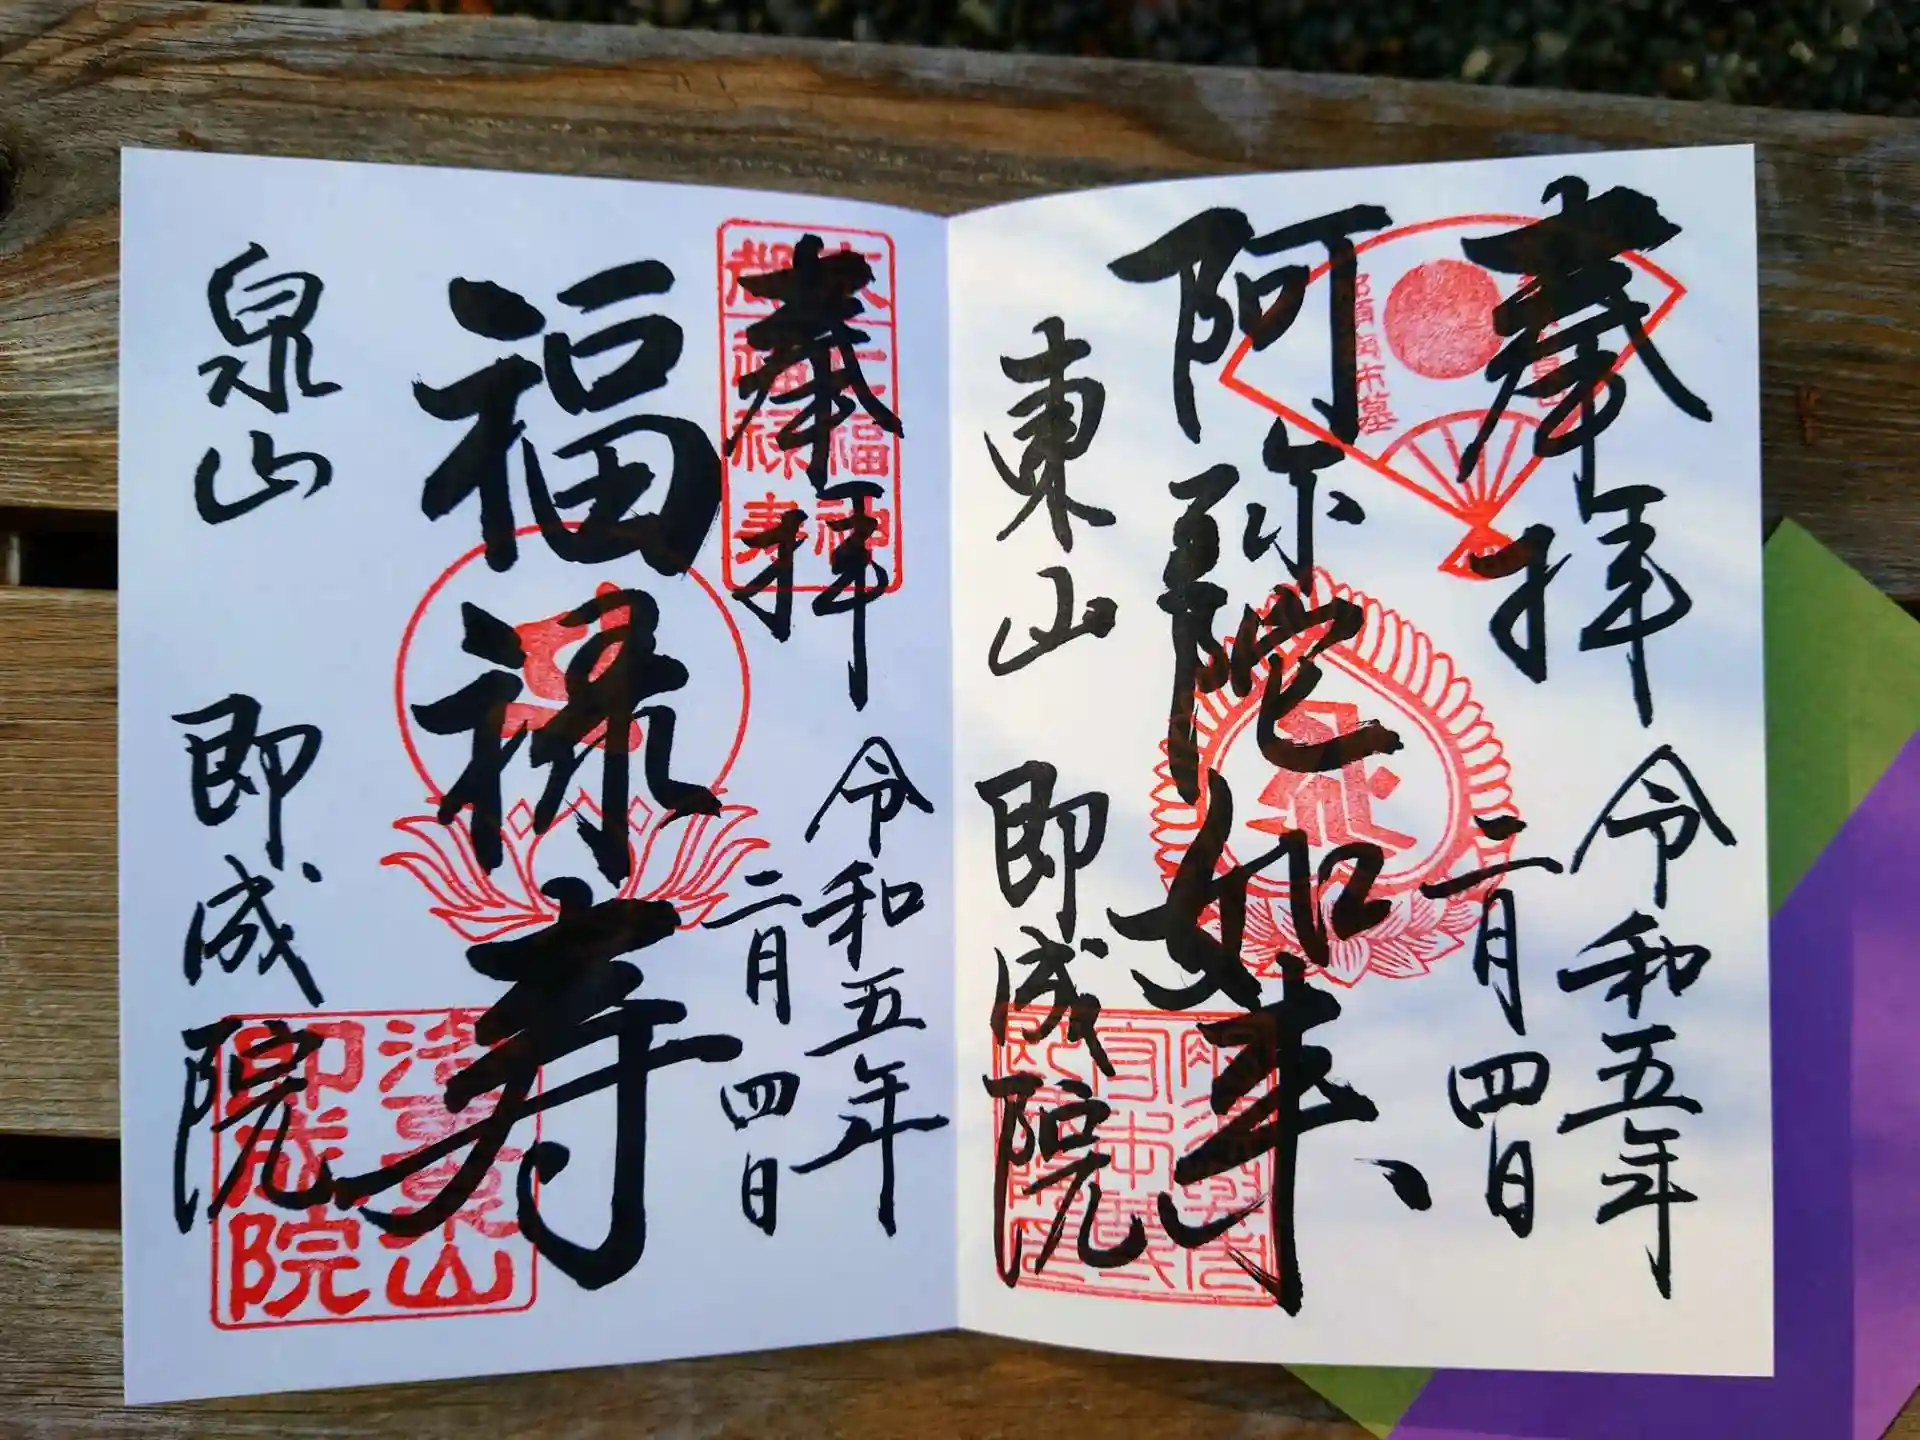 奉拝
令和五年
二月四日
阿弥陀如来
東山 即成院
那須与市墓
奉拝
令和五年
二月四日
福禄寿
泉山 即成院
七福神
都 福禄寿
法音山
即成院